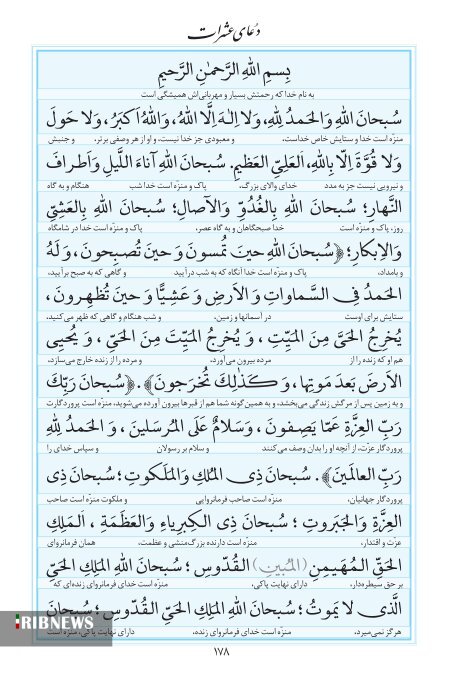 دعای عشرات
بِسمِ اللهِ الرَّحمٰنِ الرَّحیمِ
به نام خدا که رحمتش بسیار و مهربانی‌اش همیشگی است
سُبحانَ اللهِ وَالحَمدُ لِلّٰهِ، وَلا اِلٰهَ اِلَّا اللهُ، وَاللهُ اَکبَرُ، وَلا حَولَ
منزّه است خدا و ستایش خاص خداست، و معبودی جز خدا نیست، و او از هر وصفی برتر، و جنبش
وَلا قُوَّةَ اِلّا بِاللهِ، اَلعَلِیِّ العَظیمِ. سُبحانَ اللهِ آناءَ اللَّیلِ وَاَطرافَ
و نیرویی نیست جز به مدد خدای والای بزرگ، پاک و منزّه است خدا شب هنگام و به گاه
النَّهارِ؛ سُبحانَ اللهِ بِالغُدُوِّ وَالآصالِ؛ سُبحانَ اللهِ بِالعَشِیِّ
روز، پاک و منزّه است خدا صبحگاهان و به گاه عصر، پاک و منزّه است خدا در شامگاه
وَالاِبکارِ؛ ﴿سُبحانَ اللهِ حینَ تُمسونَ وَ حینَ تُصبِحونَ ، وَ لَهُ
و بامداد، پاک و منزّه است خدا آنگاه که به شب درآیید و گاهی که به صبح برآیید،
الحَمدُ فِی السَّماواتِ وَ الاَرضِ وَ عَشِیًّا وَ حینَ تُظهِرونَ ،
ستایش برای اوست در آسمانها و زمین، و شب هنگام و گاهی که ظهر می‌کنید.
یُخرِجُ الحَیَّ مِنَ المَیِّتِ ، وَ یُخرِجُ المَیِّتَ مِنَ الحَیِّ ، وَ یُحیی
هم او که زنده را از مرده بیرون می‌آورد، و مرده را از زنده خارج می‌سازد،
الاَرضَ بَعدَ مَوتِها ، وَ کَذٰلِکَ تُخرَجونَ﴾. ﴿سُبحانَ رَبِّکَ
و به زمین پس از مرگش زندگی می‌بخشد، و به همین‌گونه شما هم از قبرها بیرون آورده می‌شوید، منزّه است پروردگارت
رَبِّ العِزَّةِ عَمّا یَصِفونَ ، وَسَلامٌ عَلَی المُرسَلینَ ، وَ الحَمدُ لِلّٰهِ
پروردگار عزّت، از آنچه او را بدان وصف می‌کنند و سلام بر رسولان و سپاس خدای را
رَبِّ العالَمینَ﴾. سُبحانَ ذِی المُلکِ وَالمَلَکوتِ؛ سُبحانَ ذِی
پروردگار جهانیان، منزّه است صاحب فرمانروایی و ملکوت منزّه است صاحب
العِزَّةِ وَالجَبَروتِ ؛ سُبحانَ ذِی الکِبرِیاءِ وَالعَظَمَةِ ، اَلمَلِکِ
عزت و اقتدار، منزّه است دارنده بزرگ‌منشی و عظمت، همان فرمانروای
الحَقِّ المُهَیمِنِ (المُبینِ) القُدّوسِ ؛ سُبحانَ اللهِ المَلِکِ الحَیِّ
بر حق سیطره‌دار، دارای نهایت پاکی، منزّه است خدای فرمانروای زنده‌ای که
الَّذی لا یَموتُ ؛ سُبحانَ اللهِ المَلِکِ الحَیِّ القُدّوسِ ؛ سُبحانَ
هرگز نمی‌میرد، منزّه است خدای فرمانروای زنده، دارای نهایت پاکی، منزّه است
۱۷۸
IRIBNEWS